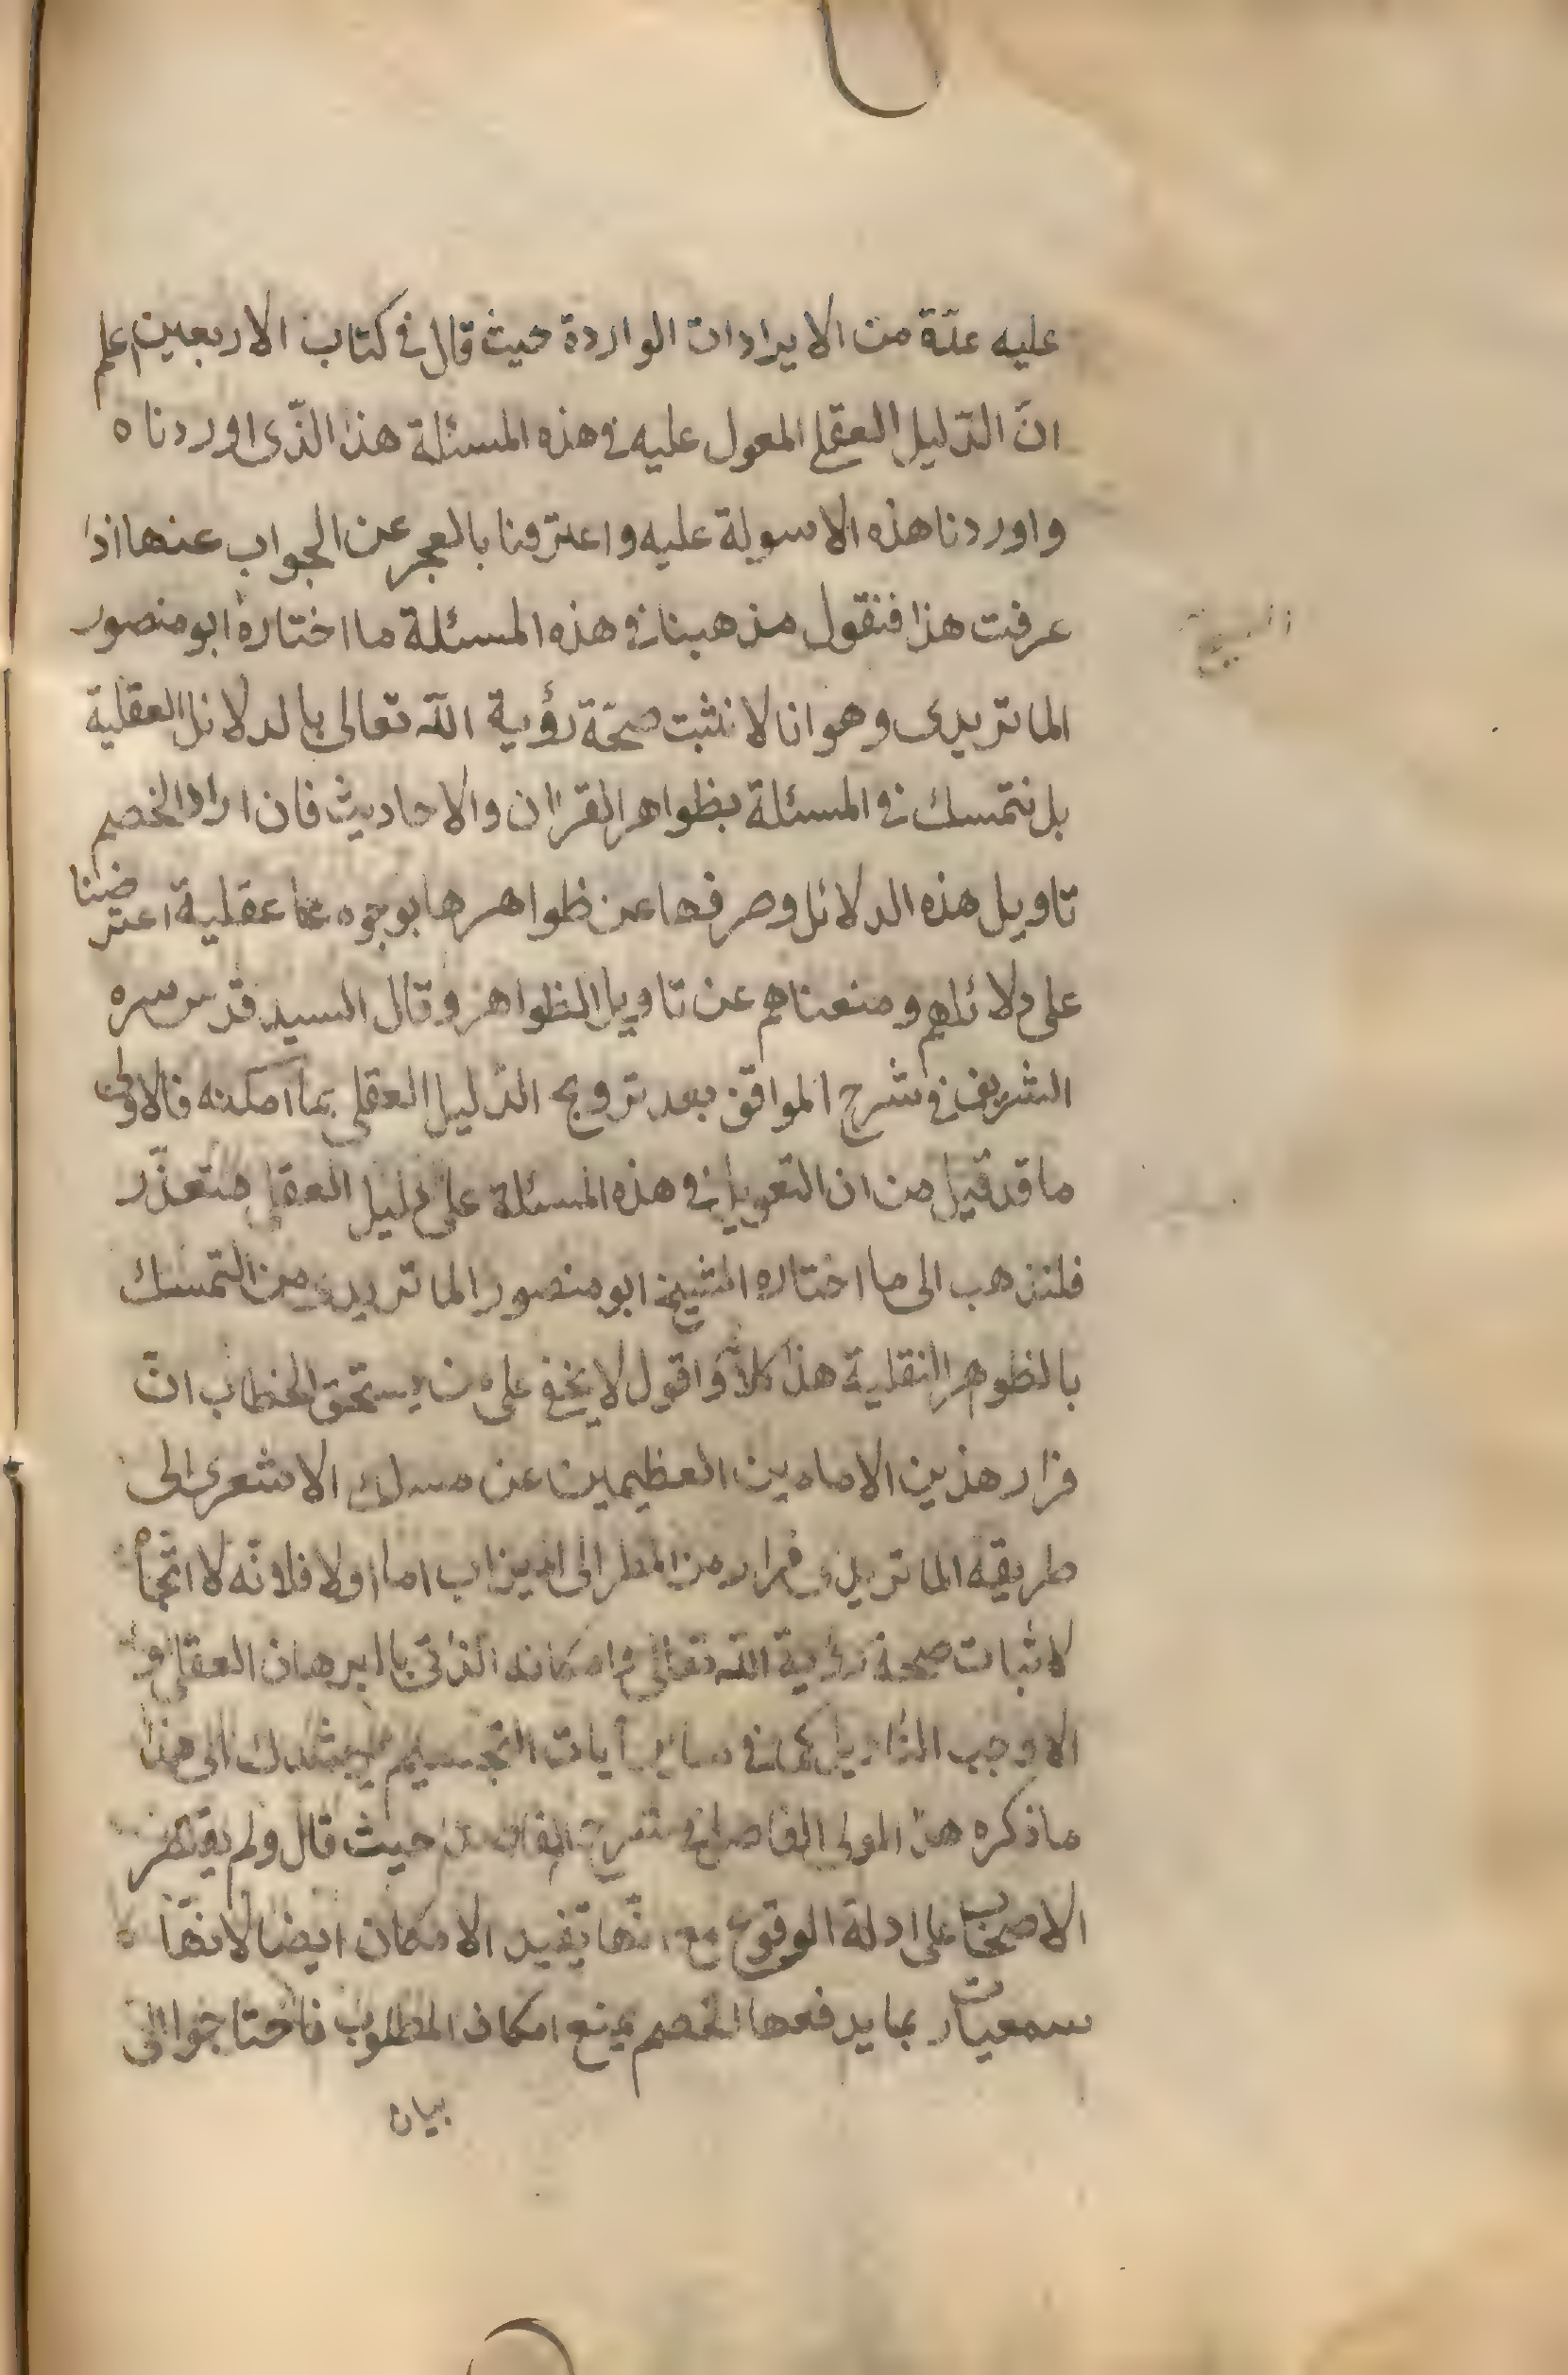 عليه عدّة من الايرادات الواردة حيث قال فى كتاب الاربعين اعلم
انّ الدّليل العقلى المعول عليه فى هذه المسئلة هذا الذّى اوردناه
واوردنا هذه الاسولة عليه واعترفنا بالعجز عن الجواب عنها اذا
عرفت هذا فنقول مذهبنا فى هذه المسئلة ما اختاره ابو منصور
الشيخ
الماتريدى وهو انا لا نثبت صحّة رؤية الله تعالى بالدلائل العقلية
بل نتمسك فى المسئلة بظواهر القرآن والاحاديث فان اراد الخصم
تاويل هذه الدلائل وصرفها عن ظواهرها بوجوه عقلية اعترضنا
على دلائلهم ومنعناهم عن تاويل الظواهر وقال السيد قدّس سره
الشريف فى شرح المواقف بعد ترويج الدّليل العقلى بما امكنه فالاولى
ما قد قيل من ان التعويل فى هذه المسئلة على دليل العقل متعذّر
فلنذهب الى ما اختاره الشيخ ابو منصور الماتريدى من التمسك
بالظوهر النقلية هذا كلامه واقول لا يخفى على من يستحق الخطاب انّ
فرار هذين الامامين العظيمين عن مسلك الاشعرى الى
طريقة الماتريدى فرار من المطر الى الميزاب اما اولا فلانّه لا
لاثبات صحة رؤية الله تعالى وامكانه الذّاتى بالبرهان العقلى و
الا وجب التّاويل كما فى ساير آيات التجسيم يرشدك الى هذا
ما ذكره هذا المولى الفاضل فى شرح المقاصد حيث قال ولم يقتصر
الاصحاب على ادلة الوقوع مع انّها تفيد الامكان ايضا لانّها
سمعيات ربما يدفعها الخصم بمنع امكان المطلوب فاحتاجوا الى
بيان